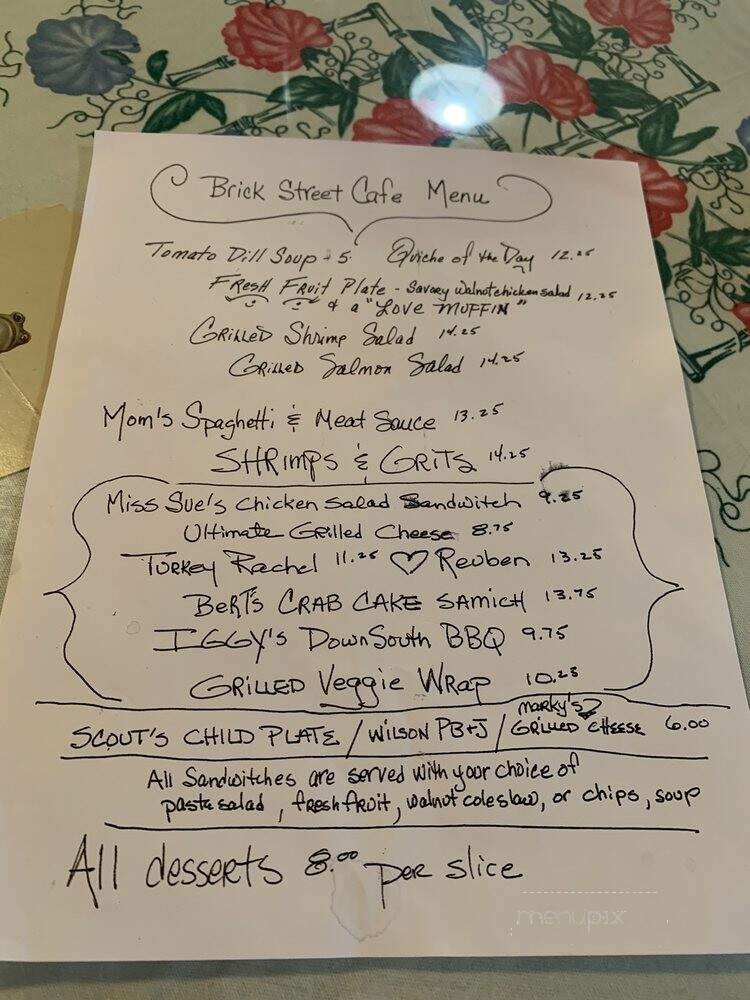 Brick Street Cafe Menu
Tomato Dill Soup - 5. Quiche of the Day 12.25
Fresh Fruit Plate - Savory walnut chicken salad 12.25
& a "Love Muffin"
Grilled Shrimp Salad 14.25
Grilled Salmon Salad 14.25
Mom's Spaghetti & Meat Sauce 13.25
SHRimps & GRiTs 14.25
Miss Sue's Chicken Salad Sandwitch 9.25
Ultimate Grilled Cheese 8.75
Turkey Rachel 11.25 ♡ Reuben 13.25
Bert's CRAB CAKE SAMICH 13.75
IGGY'S DownSouth BBQ 9.75
GRILLED Veggie WRAP 10.25
SCOUT'S CHILD PLATE / WILSON PB+J / MARKY'S GRILLED CHEESE 6.00
All Sandwitches are served with your choice of
pasta salad, fresh fruit, walnut coleslaw, or chips, soup
All desserts 8.00 per slice
menupix